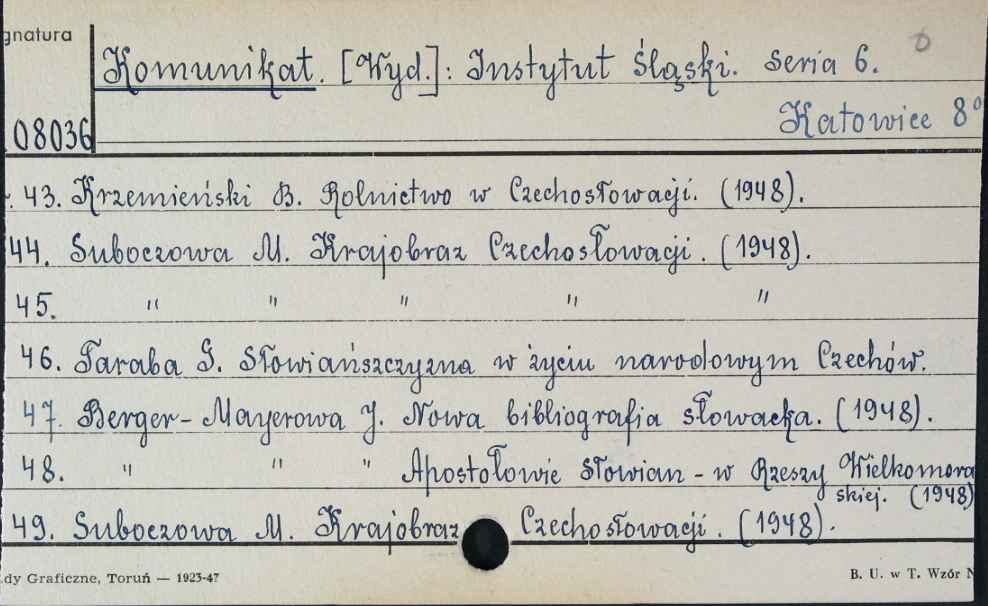 gnatura
Komunikat. [Wyd.]: Instytut Śląski. Seria 6.
Katowice 8°
08036
43. Krzemieński B. Rolnictwo w Czechosłowacji. (1948).
44. Suboczowa M. Krajobraz Czechosłowacji. (1948).
45. " " " " "
46. Taraba J. Słowiańszczyzna w życiu narodowym Czechów.
47. Berger-Mayerowa J. Nowa bibliografia słowacka. (1948).
48. " " " Apostołowie Słowian - w Rzeszy Wielkomora
skiej. (1948)
49. Suboczowa M. Krajobraz Czechosłowacji. (1948).
dy Graficzne, Toruń — 1923-47
B. U. w T. Wzór N